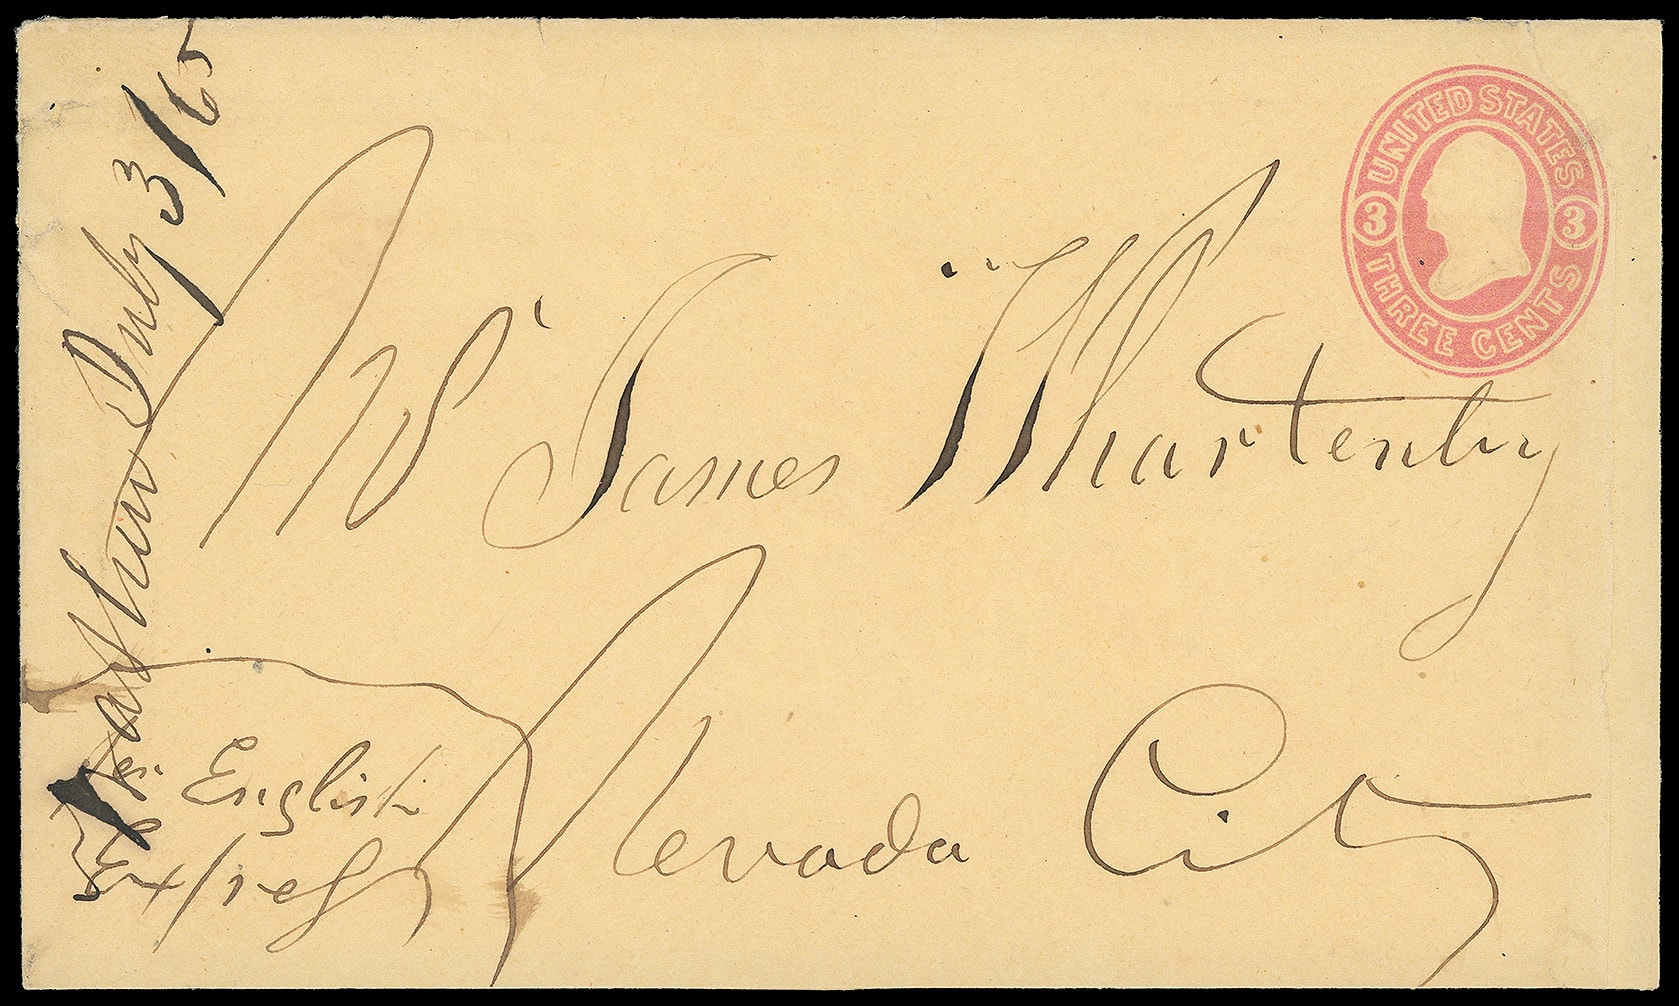 UNITED STATES
3 3
THREE CENTS
July 3/65
Mr James Whartenby
Nevada City
Per English
Express